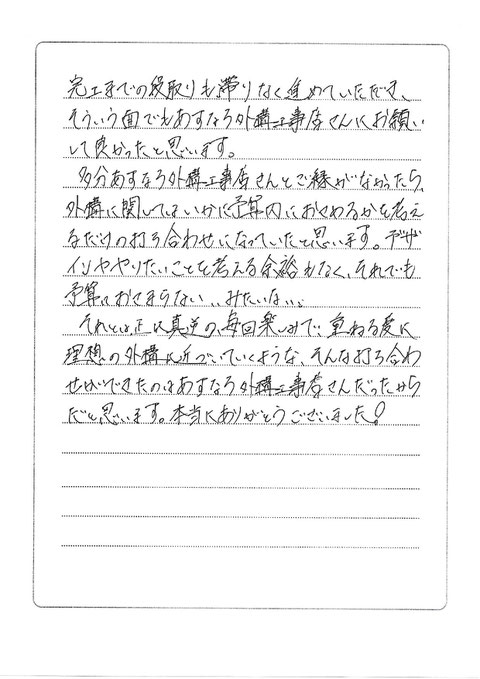 完工までの段取りも滞りなく進めていただき、
そういう面でもあすなろ外構工事店さんにお願い
して良かったと思います。
多分あすなろ外構工事店さんとご縁がなかったら、
外構に関してはいかに予算内におさめるかを考え
るだけの打ち合わせになっていたと思います。デザ
インややりたいことを考える余裕もなく、それでも
予算におさまらない、、みたいな、、
それとは正に真逆の、毎回楽しみで、重ねる度に
理想の外構に近づいていくような、そんな打ち合わ
せができたのはあすなろ外構工事店さんだったから
だと思います。本当にありがとうございました！